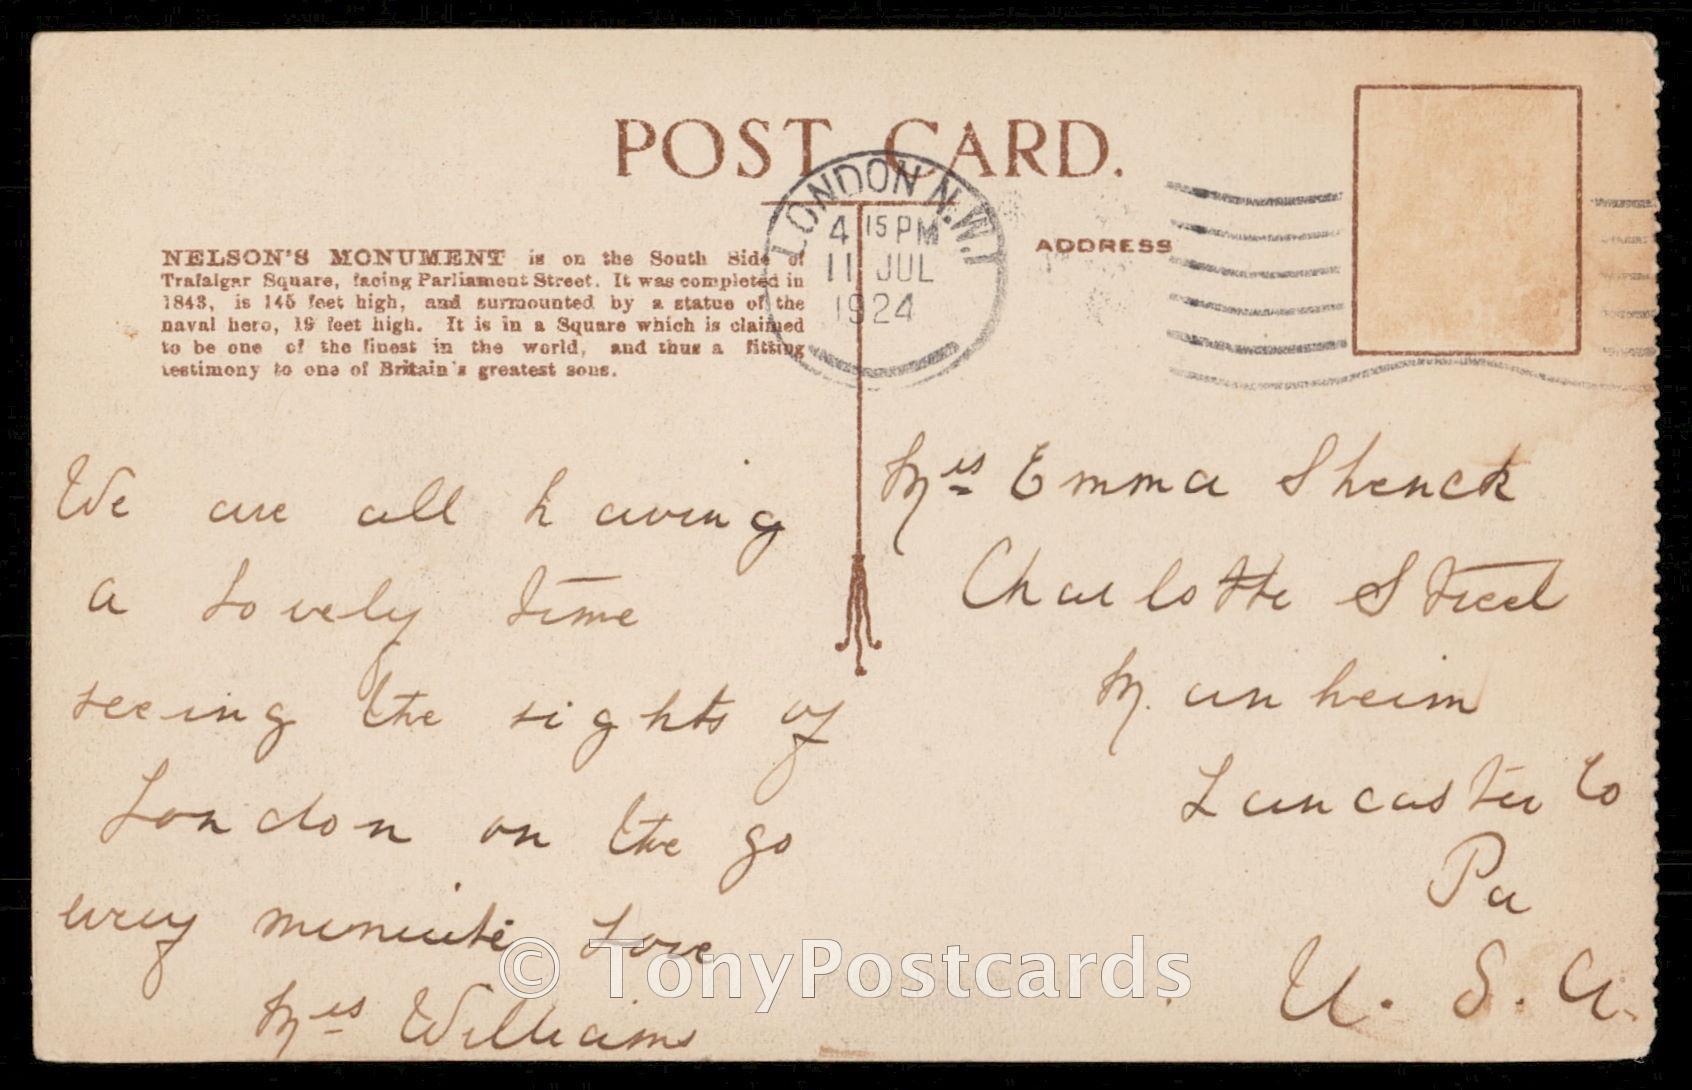 POST CARD.
LONDON N.W.1
4 15 PM
11 JUL
1924
NELSON'S MONUMENT is on the South Side of
Trafalgar Square, facing Parliament Street. It was completed in
1843, is 145 feet high, and surmounted by a statue of the
naval hero, 19 feet high. It is in a Square which is claimed
to be one of the finest in the world, and thus a fitting
testimony to one of Britain's greatest sons.
ADDRESS
We are all having
a lovely time
seeing the sights of
London on the go
every minute Love
Mrs Williams
Mrs Emma Shenck
Charlotte Street
Manheim
Lancaster Co
Pa
U. S. A.
© TonyPostcards